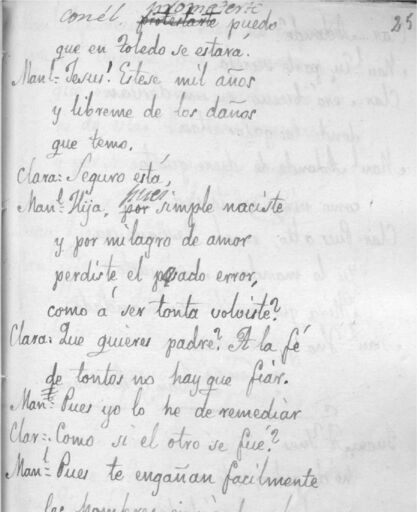 prometerte 25
conél. protestarte puedo
que en Toledo se estará.
Manl= Jesus! Estese mil años
y libreme de los daños
que temo.
Clara: Seguro está,
pues
Manl. Hija, por simple naciste
y por milagro de amor
perdiste el pasado error,
como á ser tonta volviste?
Clara: Que quieres padre? A la fé
de tontos no hay que fiár.
Manl= Pues yo lo he de remediár
Clar=. Como si el otro se fué?
Manl= Pues te engañan facilmente
los hombres